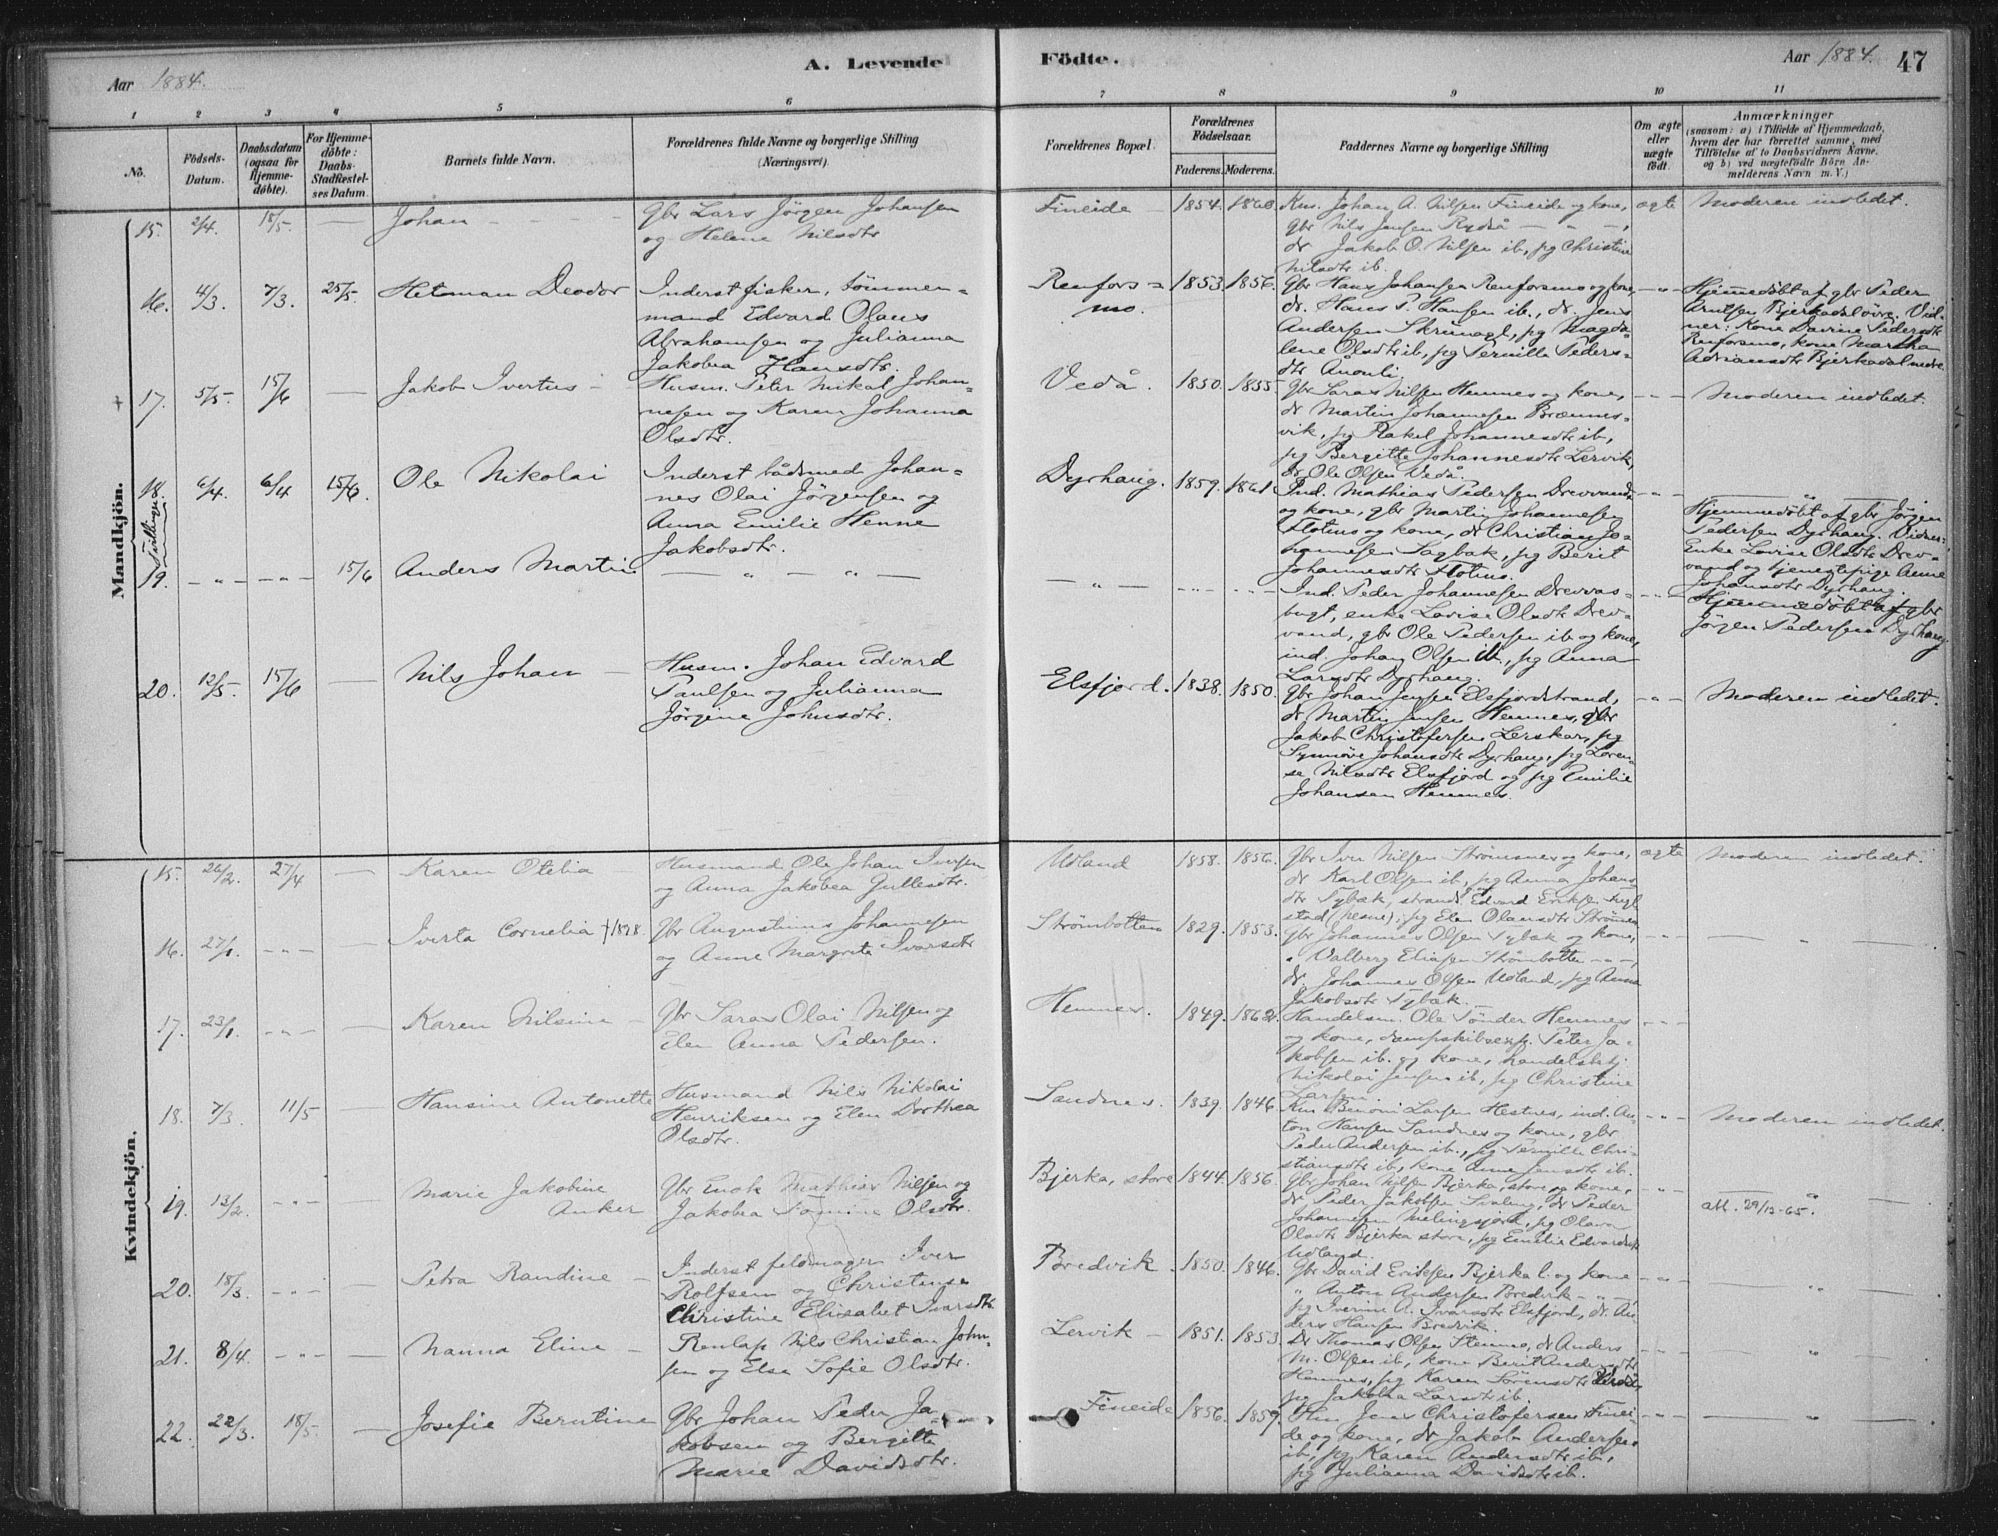 Aar 1884.
A. Levende Födte.
Aar 1884.
47
1 2 3 4 5 6 7 8 9 10 11
No.
Födsels-Datum.
Daabsdatum (ogsaa for Hjemme-døbte).
For Hjemme-døbte: Daabs Stadfæstel-ses Datum.
Barnets fulde Navn.
Forældrenes fulde Navne og borgerlige Stilling (Næringsvei).
Forældrenes Bopæl.
Forældrenes Födselsaar.
Faderens. Moderens.
Faddernes Navne og borgerlige Stilling
Om ægte eller uægte födt.
Anmærkninger (saasom: a) i Tilfælde af Hjemmedaab, hvem der har forrettet samme, med Tilföielse af to Daabsvidners Navne, og b) ved uægtefödte Börn Anmelderens Navn m. V.)
Mandkjön.
15. 2/4. 18/5. — Johan —
Gbr Lars Jörgen Johansen
og Helene Nilsdtr
Fineide — 1854. 1860.
Km. Johan A. Nilsen Fineide og kone,
gbr Nils Jensen Rydså — " —,
dr. Jakob O. Nilsen ib, pg Christine
Nilsdtr ib.
ægte
Moderen indledet.
16. 4/3. 7/3. 25/5. Herman Deodor
Inderst fisker, tömmer=
mand Edvard Olaus
Abrahamsen og Julianna
Jakobea Hansdtr.
Renfors=
mo. 1853. 1856.
Gbr Hans Johansen Renforsmo og kone,
dr. Hans P. Hansen ib., dr. Jens
Andersen , pg Magda=
lene Olsdtr ib, pg Pernille Peders=
dtr Anonli.
— " —
Hjemmedöbt af gbr Peder
Arntsen Bjerkadal övre. Vid=
ner: Kone Davine Pedersdtr
Renforsmo, kone Martha
Adriansdtr Bjerkadal nedre.
17. 5/5. 15/6 — Jakob Ivertus —
Husm. Peter Mikal Johan=
nesen og Karen Johanna
Olsdtr.
Vedå. 1850. 1855.
Gbr Lars Nilsen Hemnes og kone,
dr Martin Johannesen Brænnes=
vik, pg Rakel Johannesdtr ib,
pg Bergitte Johannesdtr Lervik,
dr Ole Olsen Vedå.
— " —
Moderen indledet.
18. 6/4. 6/4 15/6. Ole Nikolai
Tvillinger
Inderst bådsmed Johan=
nes Olai Jörgensen og
Anna Emilie Henne
Jakobsdtr.
Dyrhaug. 1859. 1861.
Ind. Mathias Pedersen Drevvand
og kone, gbr Martin Johannesen
Flotnes og kone, dr Christian Jo=
hannesen Sagbak, pg Berit
Johannesdtr Flotnes.
— " —
— " —
Hjemmedöbt af gbr Jörgen
Pedersen Dyrhaug. Vidner:
Enke Lovise Olsdtr Drev=
vand og tjenestepige Anne
Johansdtr Dyrhaug.
19. — " — — " — 15/6 Anders Martin
— " — " —
— " — — " — — " —
Ind. Peder Johannesen Drevvas=
bugt, enke Lovise Olsdtr Drev=
vand, gbr Ole Pedersen ib og kone,
ind. Johan Olsen ib., pg Anna
Larsdtr Dyrhaug.
— " —
Hjemmedöbt af gbr
Jörgen Pedersen Dyrhaug
20. 12/5. 15/6 — Nils Johan —
Husm. Johan Edvard
Paulsen og Julianna
Jörgine Johnsdtr.
Elsfjord. 1838. 1850.
Gbr Johan Jensen Elsfjordstrand,
dr Martin Jensen Hemnes, gbr
Jakob Christofersen Lerskar, pg
Synnöve Johansdtr Dyrhaug, pg Loren=
se Nilsdtr Elsfjord og pg Emilie
Johansen Hemnes.
— " —
Moderen indledet.
Kvindekjön.
15. 26/2. 27/4 — Karen Otelia —
Husmand Ole Johan Iversen
og Anna Jakobea Gullesdtr.
Utland 1858. 1856.
Gbr Iver Nilsen Strömsnes og kone,
dr Karl Olsen ib, pg Anna Johans=
dtr Sybæk, strands. Edvard Eriksen
stad (Nesne), pg Elen Olausdtr Strömsn
ægte
Moderen indledet.
16. 27/1. — " — — Iverta Cornelia
Gbr Augustinus Johannesen
og Anne Margrete Ivarsdtr
Strömbotten 1829. 1853.
Gbr Johannes Olsen Sybæk og kone,
" Valberg Eliasen Strömbotten — " —,
dr. Johannes Olsen Utland, pg Anna
Jakobsdtr Sybæk.
— " —
— " —
17. 23/1. — " — — Karen Nilsine —
Gbr Lars Olai Nilsen og
Elen Anna Pedersen.
Hemnes. 1849. 1862.
Handelsm. Ole Tönder Hemnes
og kone, dampskibsexp. Peter Ja=
kobsen ib. og kone, handelsbetj.
Nikolai Jensen ib, pg Christine
Larsen.
— " —
18. 7/3. 11/5 — Hansine Antonette
Husmand Nils Nikolai
Henriksen og Elen Dorthea
Olsdtr.
Sandnes. 1839. 1846.
Km Benoni Larsen Hestnes, ind. An=
ton Hansen Sandnes og kone, gbr
Peder Andersen ib., pg Pernille Chri=
stiansdtr ib, kone Anne Jensdtr ib.
— " —
Moderen indledet.
19. 13/2. — " — — Marie Jakobine
Anker
Gbr Enok Mathias Nilsen og
Jakobea Tomine Olsdtr.
Bjerka, store 1844. 1856.
Gbr Johan Nilsen Bjerka, store og kone,
dr Peder Jakobsen , dr Peder
Johannesen , pg Olava
Olsdtr Bjerka store, pg Emelie Edvardsdtr
Utland.
— " —
— " —
att. 29/12-65.
20. 18/3. — " — — Petra Randine —
Inderst feldmager Iver
Rolfsen og Christense
Christine Elisabet Ivarsdtr.
Bredvik. 1850. 1846.
Gbr David Eriksen Bjerka l. og kone
" Anton Andersen Bredvik — " —,
pg Iverine A. Ivarsdtr Elsfjord, dr. An=
ders Hansen Bredvik.
— " —
"
21. 8/4. — " — — Nanna Eline —
Renlap Nils Christian John=
sen og Else Sofie Olsdtr.
Lervik — 1851. 1853.
Dr Thomas Olsen Stennes, dr Anders
M. Olsen ib, kone Berit Andersdtr
Hemnes, pg Karen Sörensdtr
pg Jakobea Larsdtr ib.
— " —
"
22. 22/3. 18/5. — Josefie Berntine
Gbr Johan Peder Ja=
kobsen og Bergitte
Marie Davidsdtr.
Fineide 1856. 1859.
Km Jens Christofersen Finei=
de og kone, dr Jakob Andersen
ib, pg Karen Andersdtr ib,
pg Julianna Davidsdtr ib.
— " —
— " —